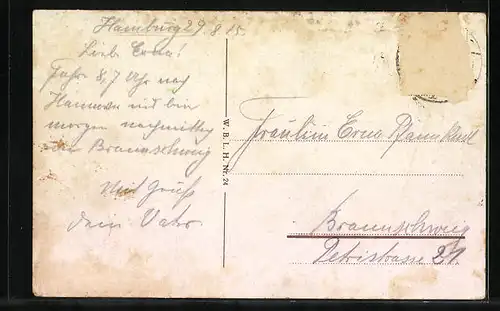 Hamburg 29.8.15
Liebe Erna!
Fahr 8,7 Uhr nach
Hannover und bin
morgen nachmittag
in Braunschweig
Mit Gruß
dein Vater.
W. B. L. H. Nr. 24
Fräulein Erna Pfannkuch
Braunschweig
Petristrasse 21